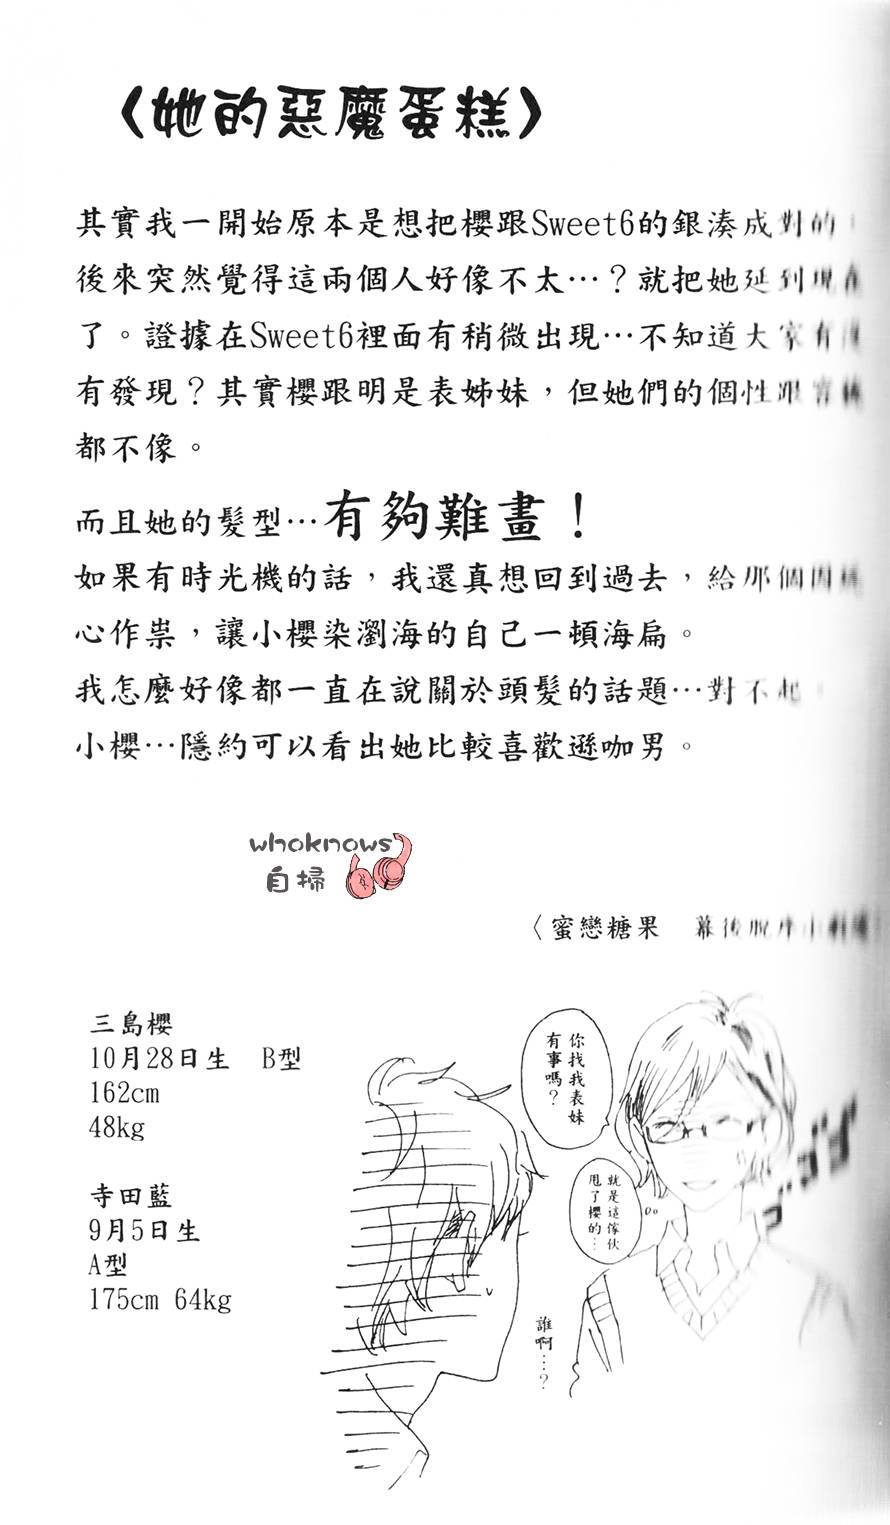 〈她的惡魔蛋糕〉
其實我一開始原本是想把櫻跟Sweet6的銀湊成對的
後來突然覺得這兩個人好像不太…？就把她延到現在
了。證據在Sweet6裡面有稍微出現…不知道大家有沒
有發現？其實櫻跟明是表姊妹，但她們的個性跟
都不像。
而且她的髮型…有夠難畫！
如果有時光機的話，我還真想回到過去，給那個因
心作祟，讓小櫻染瀏海的自己一頓海扁。
我怎麼好像都一直在說關於頭髮的話題…對不起
小櫻…隱約可以看出她比較喜歡遜咖男。
whoknows
自掃
〈蜜戀糖果　幕後
三島櫻
10月28日生　B型
162cm
48kg
寺田藍
9月5日生
A型
175cm 64kg
你找我表妹
有事嗎？
就是這傢伙
甩了櫻的…
誰啊…？
ゴゴゴ